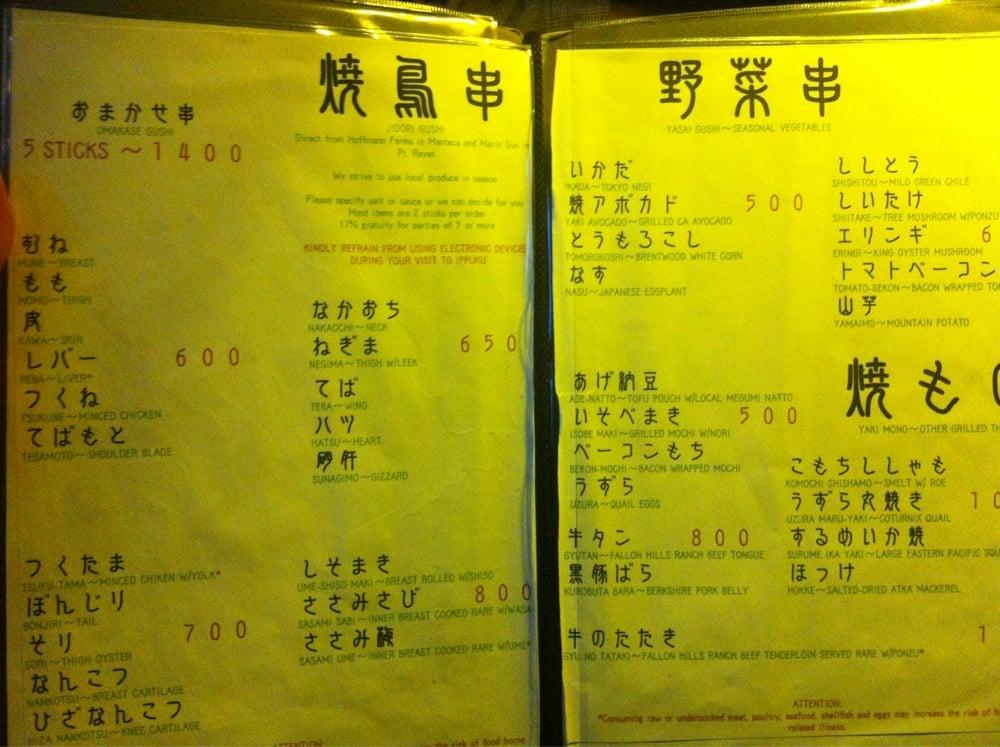 焼鳥串
JIDORI GUSHI
Direct from Hoffmann Farms in Manteca and Marin Sun in
Pt. Reyes
We strive to use local produce in season
Please specify salt or sauce or we can decide for you
Most items are 2 sticks per order
17% gratuity for parties of 5 or more
KINDLY REFRAIN FROM USING ELECTRONIC DEVICES
DURING YOUR VISIT TO IPPUKU
おまかせ串
OMAKASE GUSHI
5 STICKS ~ 1400
むね
MUNE~BREAST
もも
MOMO~THIGH
皮
KAWA~SKIN
レバー 600
REBA~LIVER*
つくね
TSUKUNE~MINCED CHICKEN
てばもと
TEBAMOTO~SHOULDER BLADE
なかおち
NAKAOCHI~NECK
ねぎま 650
NEGIMA~THIGH W/LEEK
てば
TEBA~WING
ハツ
HATSU~HEART
砂肝
SUNAGIMO~GIZZARD
つくたま
TSUKU-TAMA~MINCED CHIKEN W/YOLK*
ぼんじり
BONJIRI~TAIL
そり 700
SORI~THIGH OYSTER
なんこつ
NANKOTSU~BREAST CARTILAGE
ひざなんこつ
HIZA NANKOTSU~KNEE CARTILAGE
しそまき
UME-SHISO MAKI~BREAST ROLLED W/SHISO
ささみさび 800
SASAMI SABI~INNER BREAST COOKED RARE W/WASA
ささみ梅
SASAMI UME~INNER BREAST COOKED RARE W/UME*
ATTENTION:
the risk of food borne
野菜串
YASAI GUSHI~SEASONAL VEGETABLES
いかだ
IKADA~TOKYO NEGI
焼アボカド 500
YAKI AVOCADO~GRILLED CA AVOCADO
とうもろこし
TOMOROKOSHI~BRENTWOOD WHITE CORN
なす
NASU~JAPANESE EGGPLANT
ししとう
SHISHITOU~MILD GREEN CHILE
しいたけ
SHIITAKE~TREE MUSHROOM W/PONZU
エリンギ 6
ERINGI~KING OYSTER MUSHROOM
トマトベーコン
TOMATO-BEKON~BACON WRAPPED TO
山芋
YAMAIMO~MOUNTAIN POTATO
あげ納豆
AGE-NATTO~TOFU POUCH W/LOCAL MEGUMI NATTO
いそべまき 500
ISOBE MAKI~GRILLED MOCHI W/NORI
ベーコンもち
BEKON-MOCHI~BACON WRAPPED MOCHI
うずら
UZURA~QUAIL EGGS
牛タン 800
GYUTAN~FALLON HILLS RANCH BEEF TONGUE
黒豚ばら
KUROBUTA BARA~BERKSHIRE PORK BELLY
牛のたたき 1
GYU NO TATAKI~FALLON HILLS RANCH BEEF TENDERLOIN SERVED RARE W/PONZU*
焼もの
YAKI MONO~OTHER GRILLED TH
こもちししゃも
KOMOCHI SHISHAMO~SMELT W/ ROE
うずら丸焼き 10
UZURA MARU-YAKI~COTURNIX QUAIL
するめいか焼
SURUME IKA YAKI~LARGE EASTERN PACIFIC SQU
ほっけ
HOKKE~SALTED-DRIED ATKA MACKEREL
ATTENTION:
*Consuming raw or undercooked meat, poultry, seafood, shellfish and eggs may increase the risk of fo
related illness.